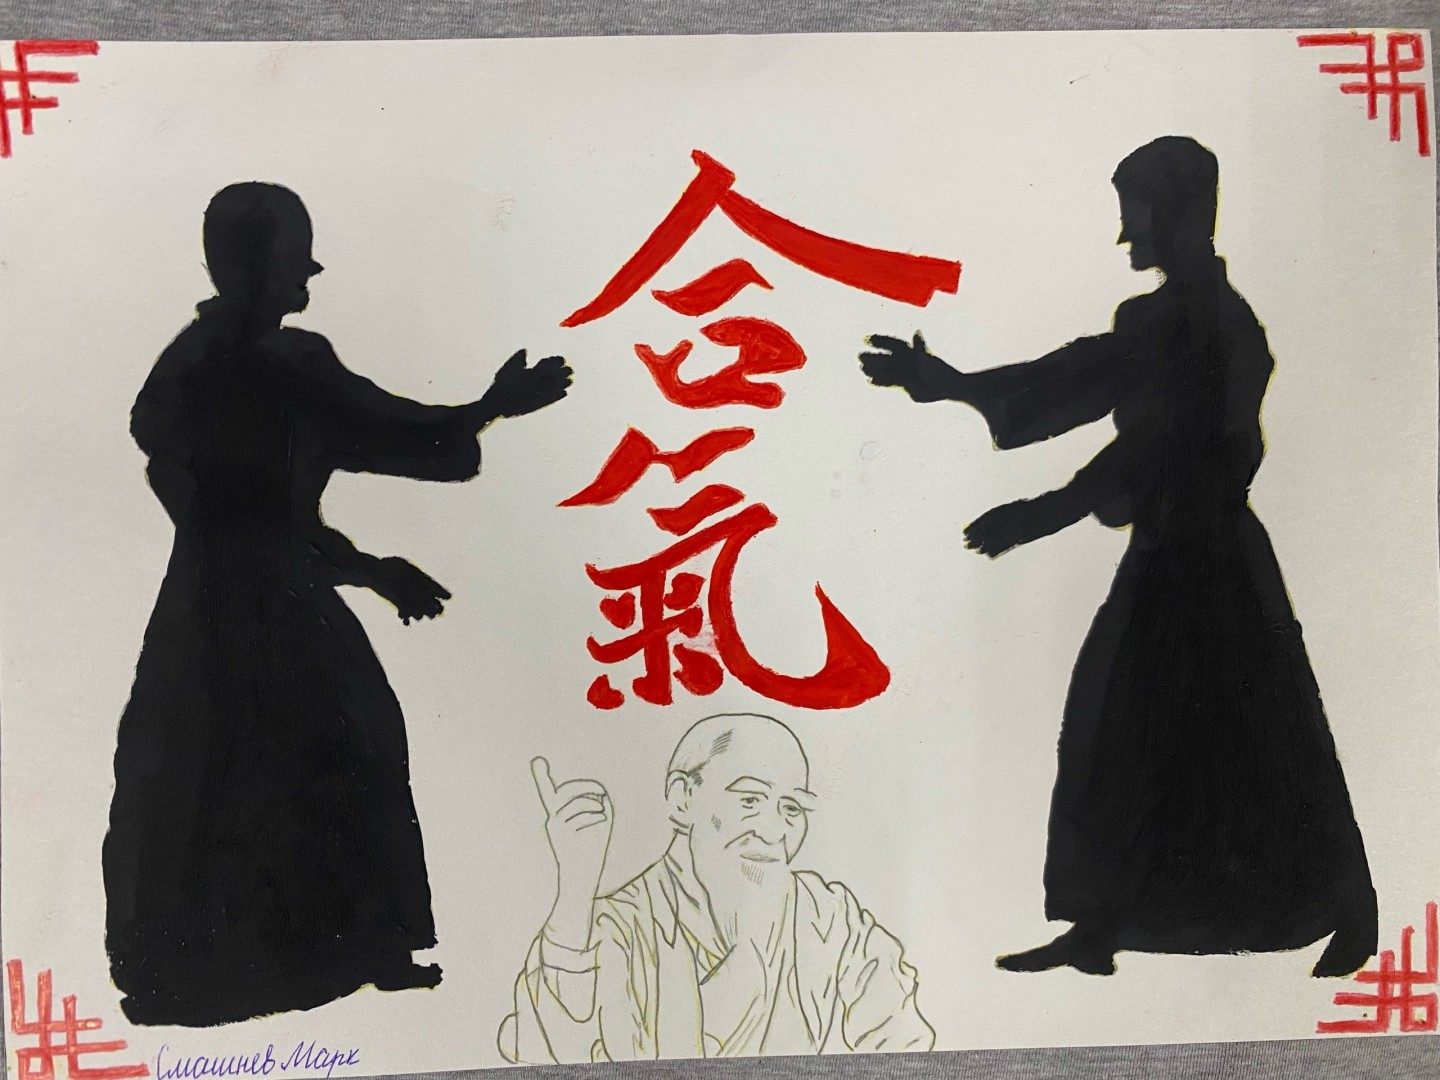 合
氣
Смашнев Марк